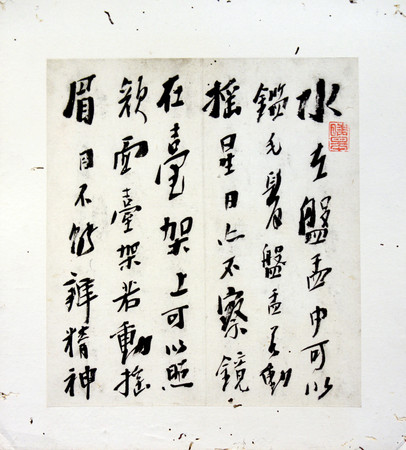 水在盤盂中可以
鑑毛髮盤盂若動
搖星日亦不察鏡
在臺架上可以照
顏面臺架若動搖
眉目不能辨精神